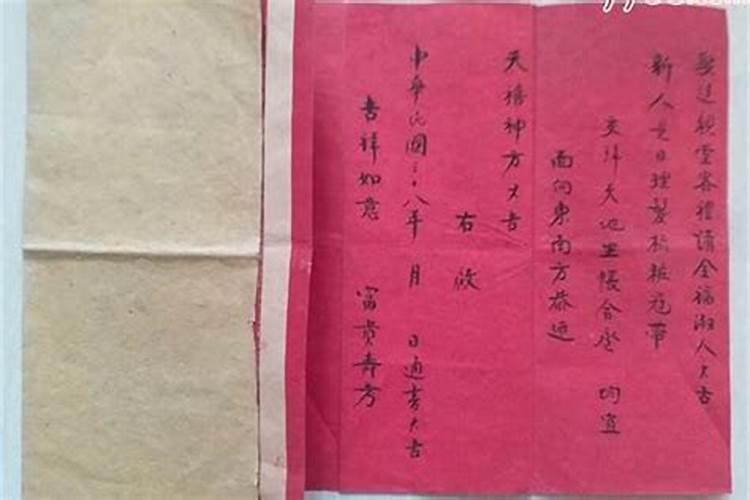 娶送親堂客禮請全福淑人大吉
新人是日理髮梳粧冠帶
交拜天地坐帳合巹 均宜
面向東南方恭迎
天禧神方大吉
右啟
中華民國三十八年 月 日通書大吉
吉祥如意 富貴壽方